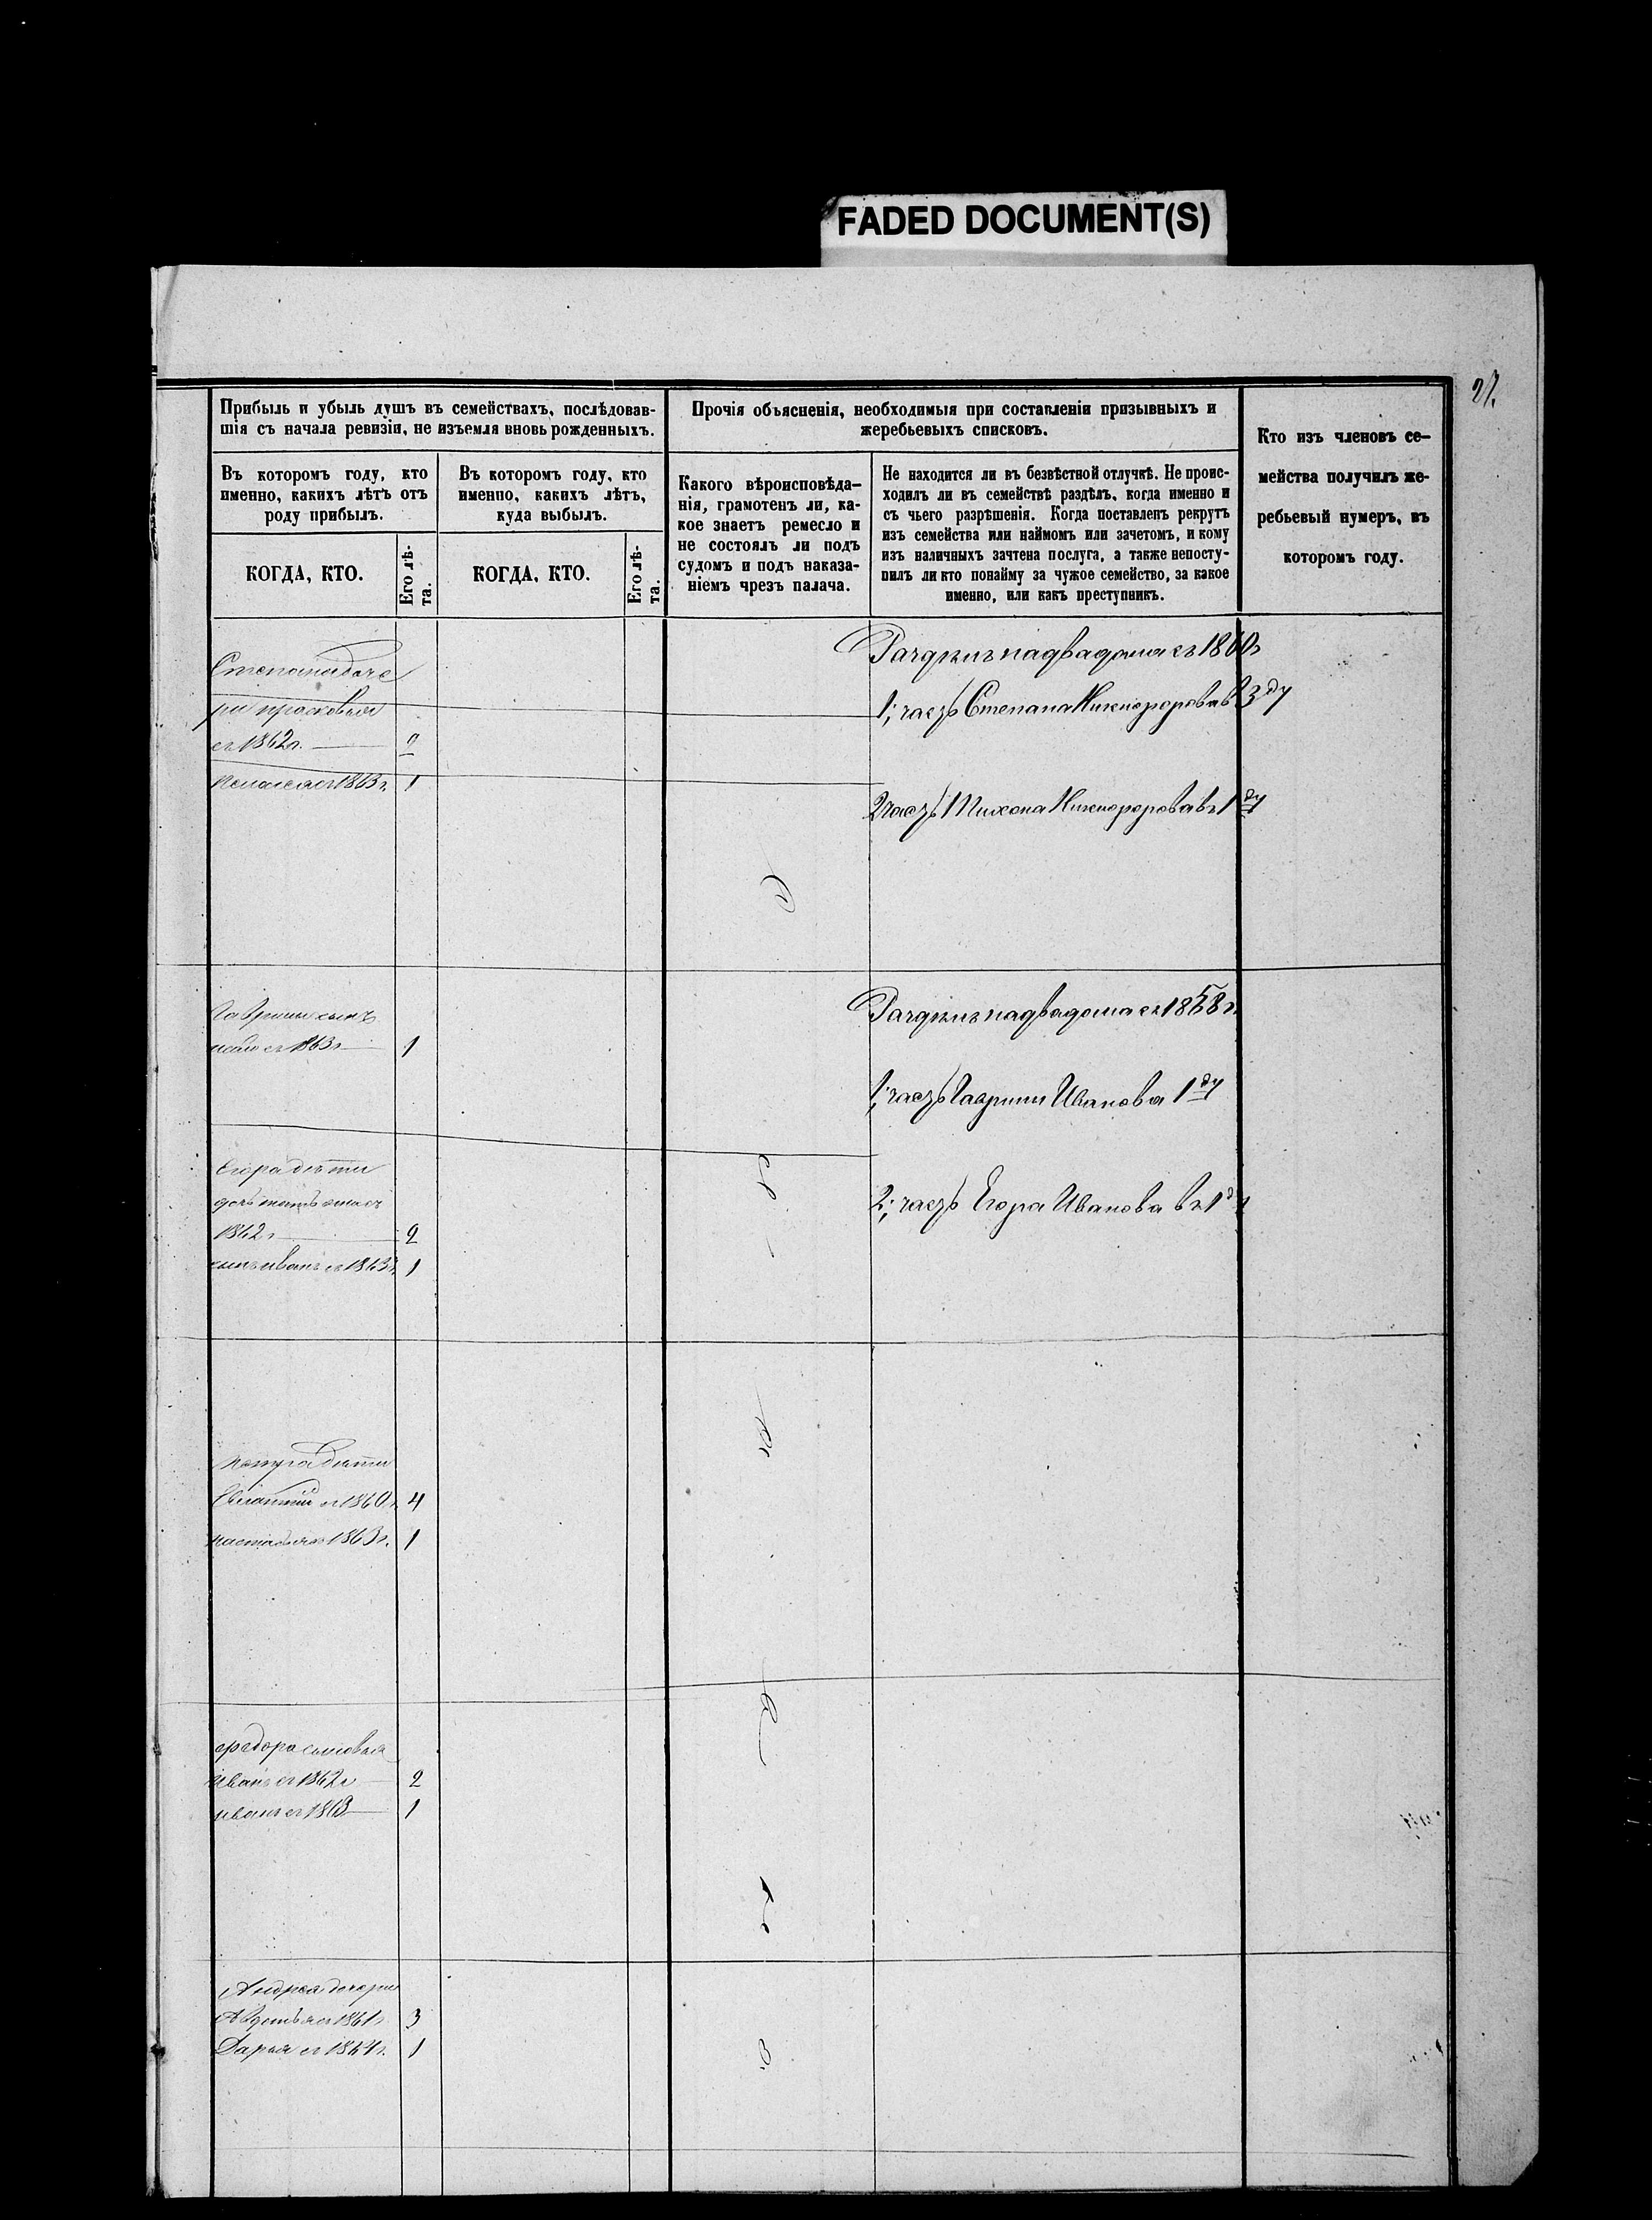 FADED DOCUMENT(S)
27.
Прибыль и убыль душъ въ семействахъ, послѣдовав-
шія съ начала ревизіи, не изъемля вновь рожденныхъ.
Въ которомъ году, кто
именно, какихъ лѣтъ отъ
роду прибылъ.
КОГДА, КТО.
Его лѣ-
та.
Въ которомъ году, кто
именно, какихъ лѣтъ,
куда выбылъ.
КОГДА, КТО.
Его лѣ-
та.
Прочія объясненія, необходимыя при составленіи призывныхъ и
жеребьевыхъ списковъ.
Какого вѣроисповѣда-
нія, грамотенъ ли, ка-
кое знаетъ ремесло и
не состоялъ ли подъ
судомъ и подъ наказа-
ніемъ чрезъ палача.
Не находится ли въ безвѣстной отлучкѣ. Не проис-
ходилъ ли въ семействѣ раздѣлъ, когда именно и
съ чьего разрѣшенія. Когда поставленъ рекрутъ
изъ семейства или наймомъ или зачетомъ, и кому
изъ наличныхъ зачтена послуга, а также непосту-
пилъ ли кто понайму за чужое семейство, за какое
именно, или какъ преступникъ.
Кто изъ членовъ се-
мейства получилъ же-
ребьевый нумеръ, въ
которомъ году.
Степана доче
ри прасковья
съ 1862 г. 2
пелагея съ 1863 г. 1
на два дома съ 1860 г
1; часть Степана Никифорова в 3 ду
2 часть Тихона Никифорова въ 1 ду
Гаврилы сынъ
съ 1863 г 1
на два дома съ 1858 г.
1; часть Гаврилы Иванова 1 ду
Егора дѣти
дочь
1862 г 2
сынъ иванъ съ 1863 г. 1
2; часть Егора Иванова въ 1 д
петра дѣти
съ 1860 г. 4
настасья съ 1863 г. 1
федора сыновья
Иванъ съ 1862 г 2
иванъ съ 1863 1
Андрея дочери
Авдотья съ 1861 г 3
Дарья съ 1864 г. 1